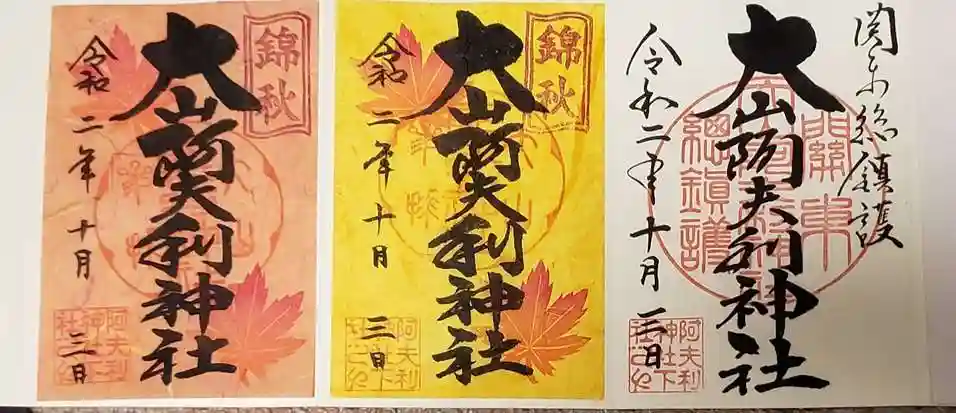 錦秋
大山阿夫利神社
令和二年十月三日
阿夫利
神社下
社之印
錦秋
大山阿夫利神社
令和二年十月三日
阿夫利
神社下
社之印
関東総鎮護
大山阿夫利神社
關東
總鎮護
令和二年十月三日
阿夫利
神社下
社之印